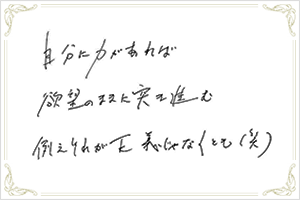 自分に力があれば
欲望のままに突き進む
例えそれが正義じゃなくとも(笑)